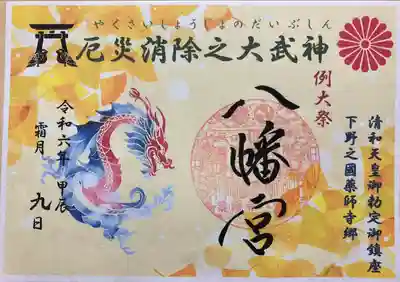 やくさいしょうじょのだいぶしん
厄災消除之大武神
例大祭
清和天皇御勅定御鎮座
下野之國薬師寺郷
八幡宮
令和六年 甲辰
霜月 九日